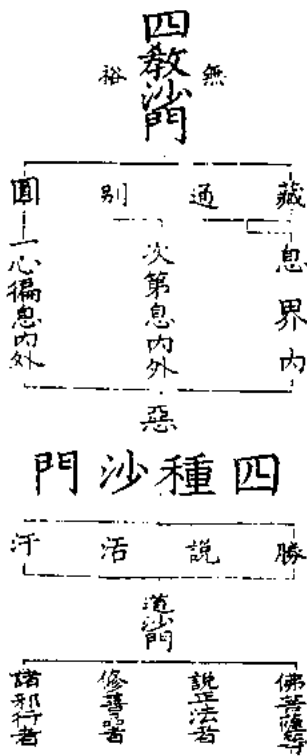 四教沙門
無裕
藏通別圓
息界內
次第息內外
一心徧息內外
惡
四種沙門
勝說活汙
道沙門
佛菩薩等
說正法者
修善品者
諸邪行者